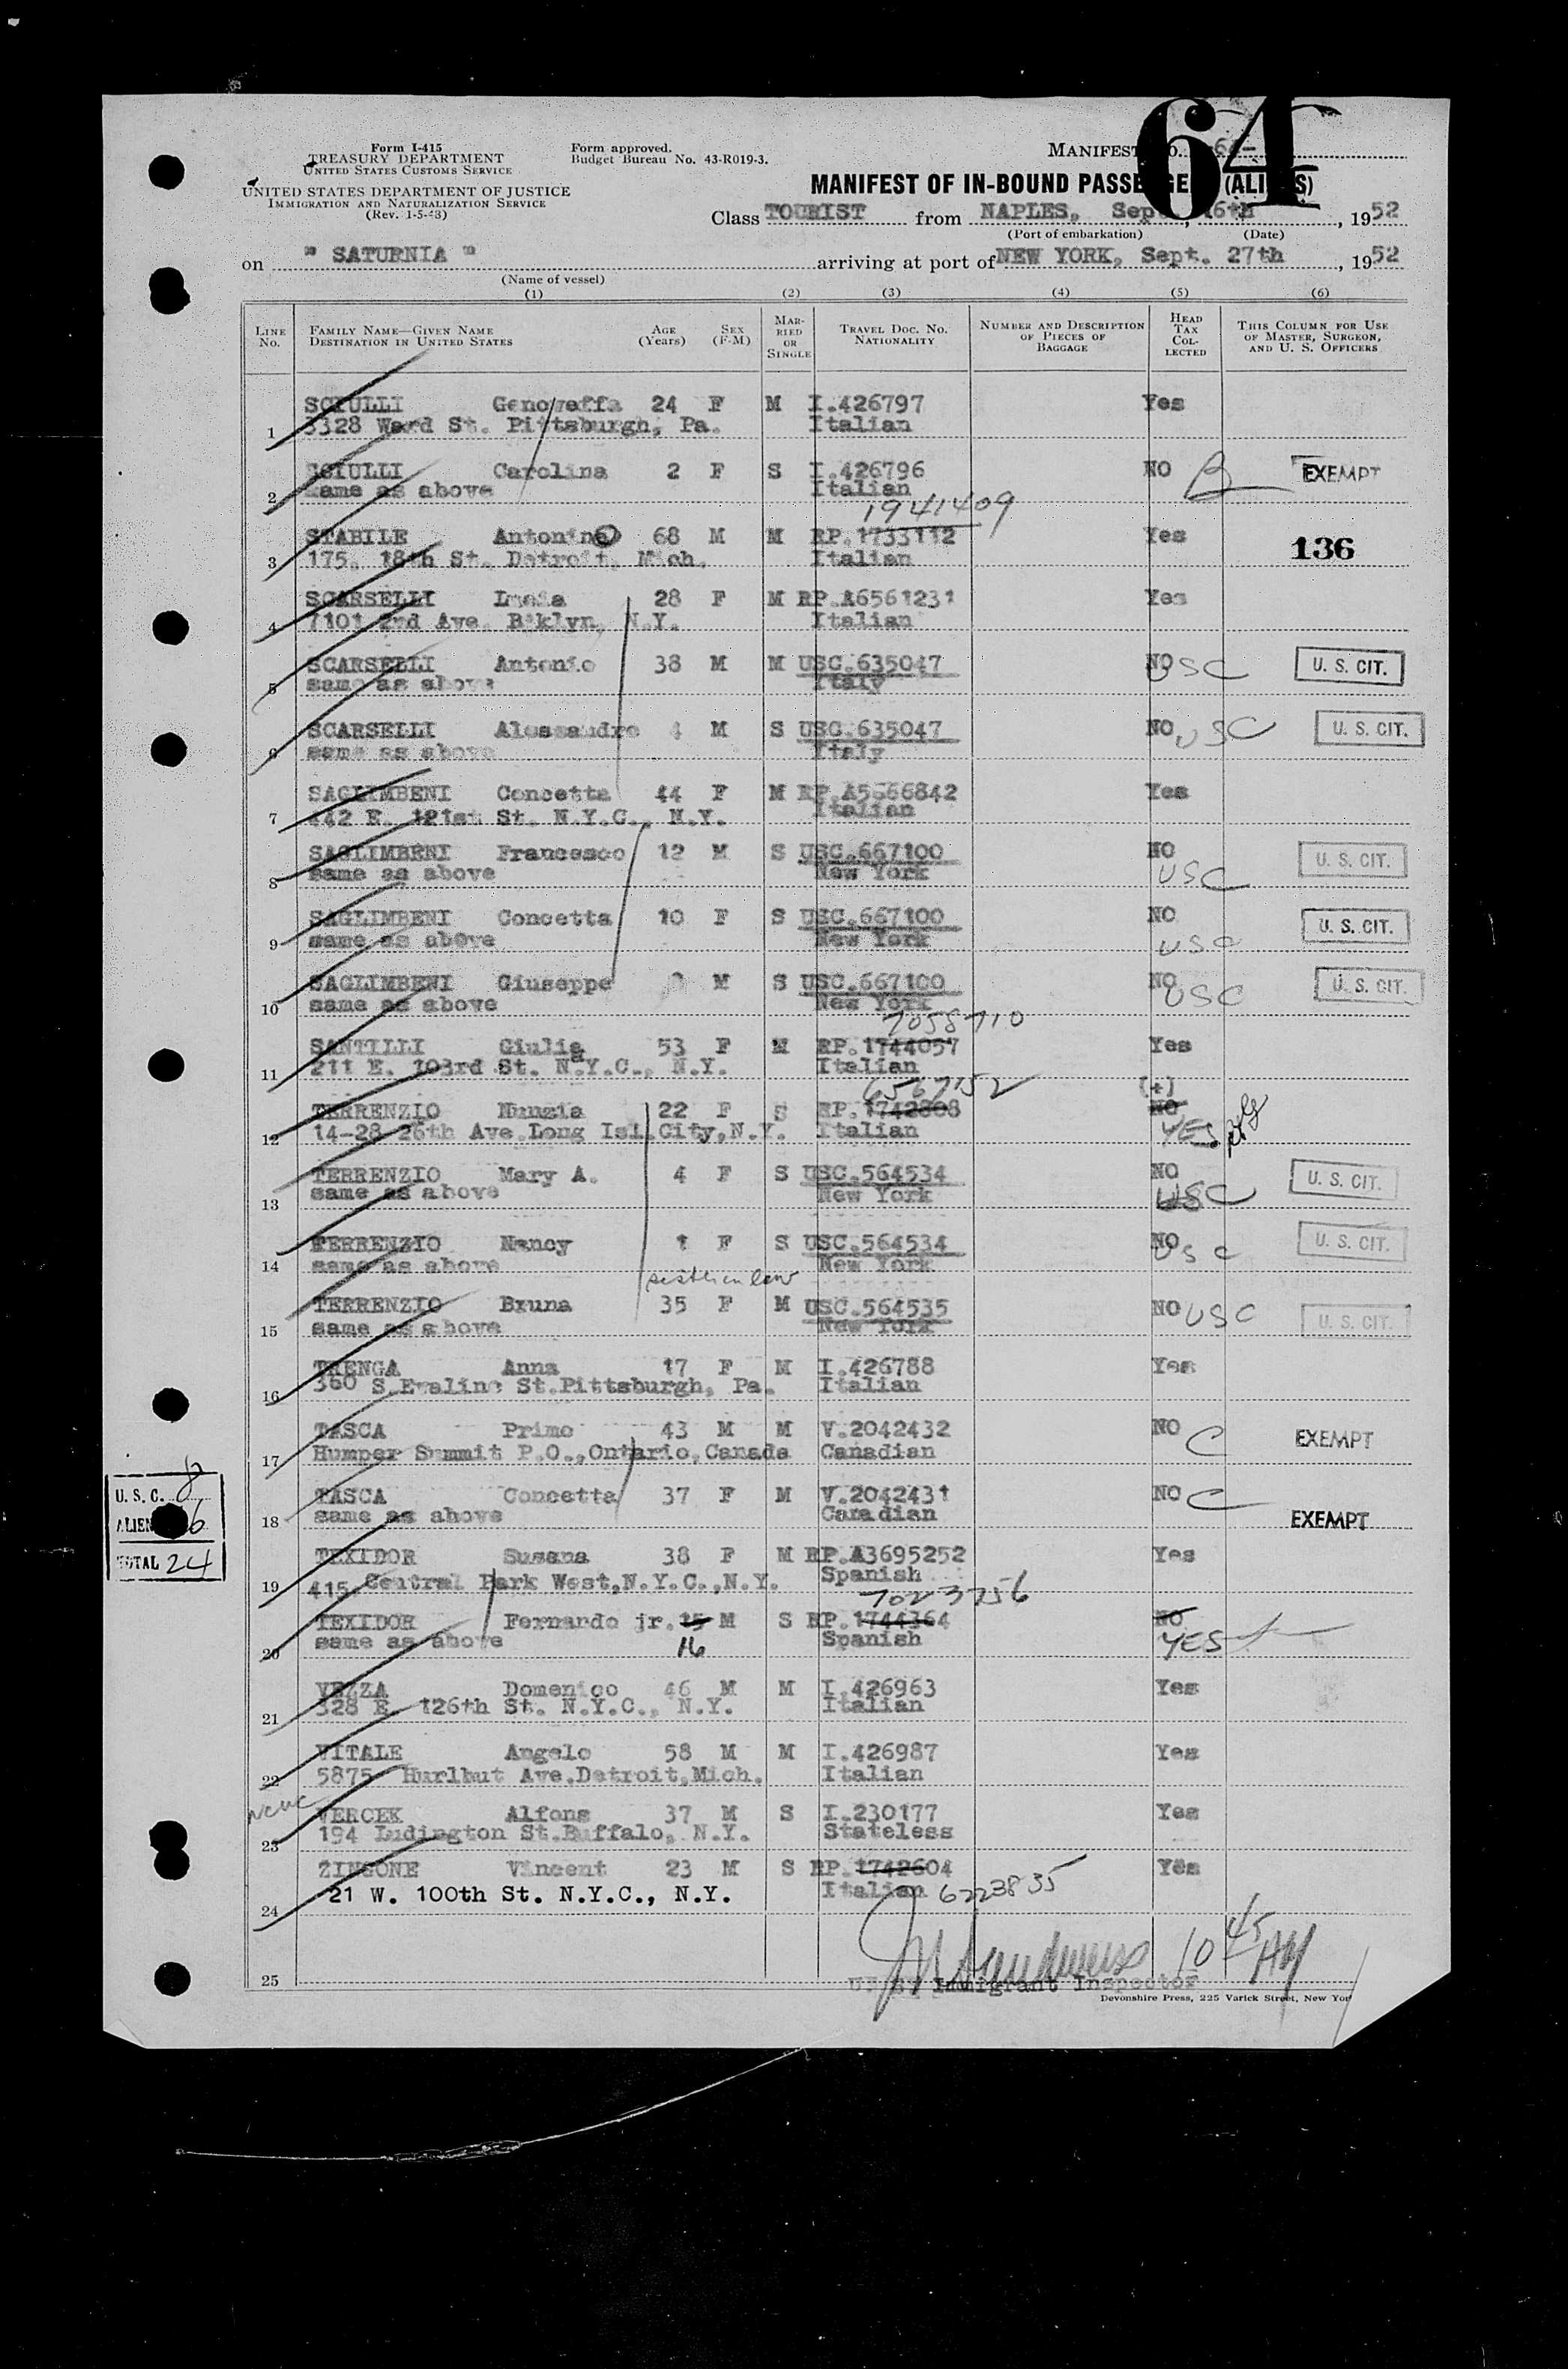 64
Form I-415
TREASURY DEPARTMENT
UNITED STATES CUSTOMS SERVICE
UNITED STATES DEPARTMENT OF JUSTICE
IMMIGRATION AND NATURALIZATION SERVICE
(Rev. 1-5-48)
Form approved.
Budget Bureau No. 43-R019-3.
MANIFEST NO.
MANIFEST OF IN-BOUND PASSENGERS (ALIENS)
Class TOURIST from NAPLES, Sept. 16th, 1952
(Port of embarkation) (Date)
on " SATURNIA " arriving at port of NEW YORK, Sept. 27th, 1952
(Name of vessel)
(1) (2) (3) (4) (5) (6)
LINE No. FAMILY NAME—GIVEN NAME DESTINATION IN UNITED STATES AGE (Years) SEX (F-M) MARRIED OR SINGLE TRAVEL DOC. NO. NATIONALITY NUMBER AND DESCRIPTION OF PIECES OF BAGGAGE HEAD TAX COLLECTED THIS COLUMN FOR USE OF MASTER, SURGEON, AND U. S. OFFICERS
SCIULLI Genoveffa 24 F M I.426797 Yes
1 3328 Ward St. Pittsburgh, Pa. Italian
SCIULLI Carolina 2 F S I.426796 NO B EXEMPT
2 same as above Italian
1941409
STABILE Antonino 68 M M RP.1733112 Yes 136
3 175. 18th St. Detroit, Mich. Italian
SCARSELLI Lucia 28 F M RP.A6561231 Yes
4 7101 2rd Ave. B'klyn, N.Y. Italian
SCARSELLI Antonio 38 M M USC.635047 NO USC U. S. CIT.
5 same as above Italy
SCARSELLI Alessandro 4 M S USC.635047 NO USC U. S. CIT.
6 same as above Italy
SAGLIMBENI Concetta 44 F M RP.A5666842 Yes
7 442 E. 121st St. N.Y.C., N.Y. Italian
SAGLIMBENI Francesco 12 M S USC.667100 NO U. S. CIT.
8 same as above New York USC
SAGLIMBENI Concetta 10 F S USC.667100 NO U. S. CIT.
9 same as above New York USC
SAGLIMBENI Giuseppe M S USC.667100 NO USC U. S. CIT.
10 same as above New York
7058710
SANTILLI Giulia 53 F M RP.1744057 Yes
11 211 E. 103rd St. N.Y.C., N.Y. Italian
6567152 (+)
TERRENZIO Nunzia 22 F S RP.1742808 NO
12 14-28 26th Ave.Long Isl.City,N.Y. Italian YES
TERRENZIO Mary A. 4 F S USC.564534 NO U. S. CIT.
13 same as above New York USC
TERRENZIO Nancy 1 F S USC.564534 NO USC U. S. CIT.
14 same as above New York
sister in law
TERRENZIO Bruna 35 F M USC.564535 NO USC U. S. CIT.
15 same as above New York
TRENGA Anna 17 F M I.426788 Yes
16 360 S.Evaline St.Pittsburgh, Pa. Italian
TASCA Primo 43 M M V.2042432 NO C EXEMPT
17 Humper Summit P.O.,Ontario,Canada Canadian
TASCA Concetta 37 F M V.2042431 NO C
18 same as above Canadian EXEMPT
U. S. C. 8
ALIEN 16
TOTAL 24
TEXIDOR Susana 38 F M RP.A3695252 Yes
19 415 Central Park West,N.Y.C.,N.Y. Spanish
7023756
TEXIDOR Fernando jr. 15 M S RP.1744364 NO
20 same as above 16 Spanish YES
VEZZA Domenico 46 M M I.426963 Yes
21 328 E. 126th St. N.Y.C., N.Y. Italian
VITALE Angelo 58 M M I.426987 Yes
22 5875 Hurlbut Ave.Detroit,Mich. Italian
VERCEK Alfons 37 M S I.230177 Yes
23 194 Ludington St.Buffalo, N.Y. Stateless
ZINGONE Vincent 23 M S RP.1742604 Yes
24 21 W. 100th St. N.Y.C., N.Y. Italian 6223835
10 45 AM
25 U. S. Immigrant Inspector
Devonshire Press, 225 Varick Street, New Yor